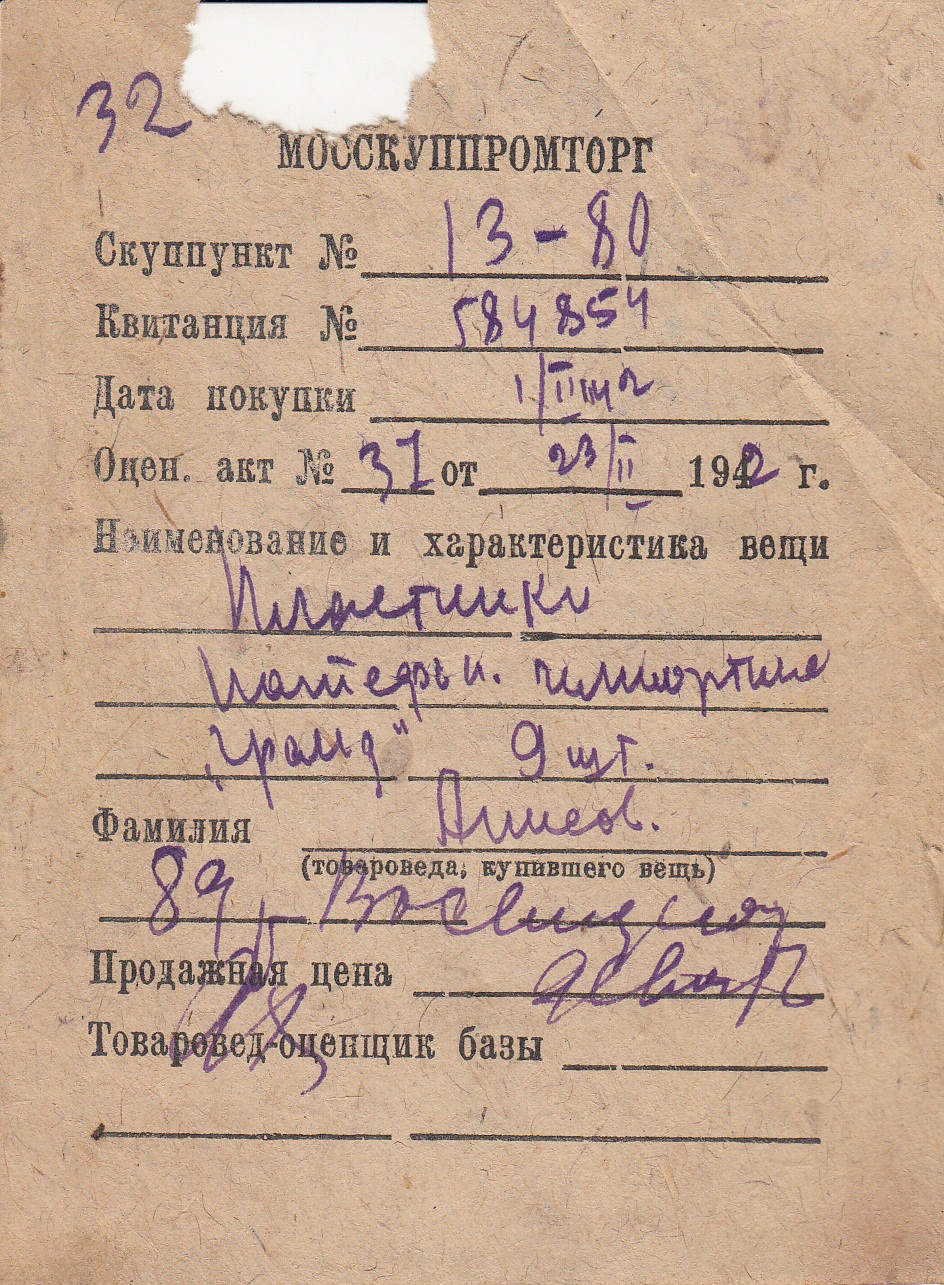 32
МОССКУППРОМТОРГ
Скуппункт № 13-80
Квитанция № 584854
Дата покупки 1/II 42
Оцен. акт № 37 от 23/II 1942 г.
Наименование и характеристика вещи
Пластинки
патефон. импортные
„Гранд" 9 шт.
Фамилия
(товароведа, купившего вещь)
89 р Восемьдесят
Продажная цена девять
Товаровед-оценщик базы